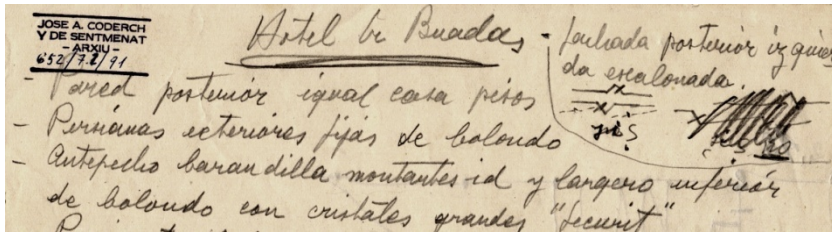 JOSE A. CODERCH
Y DE SENTMENAT
- ARXIU -
Hotel de Buadas - fachada posterior izquier
da escalonada.
- Pared posterior igual casa pisos
- Persianas exteriores fijas de bolondo
- Antepecho barandilla montantes id y largero inferior
de bolondo con cristales grandes "Securit"